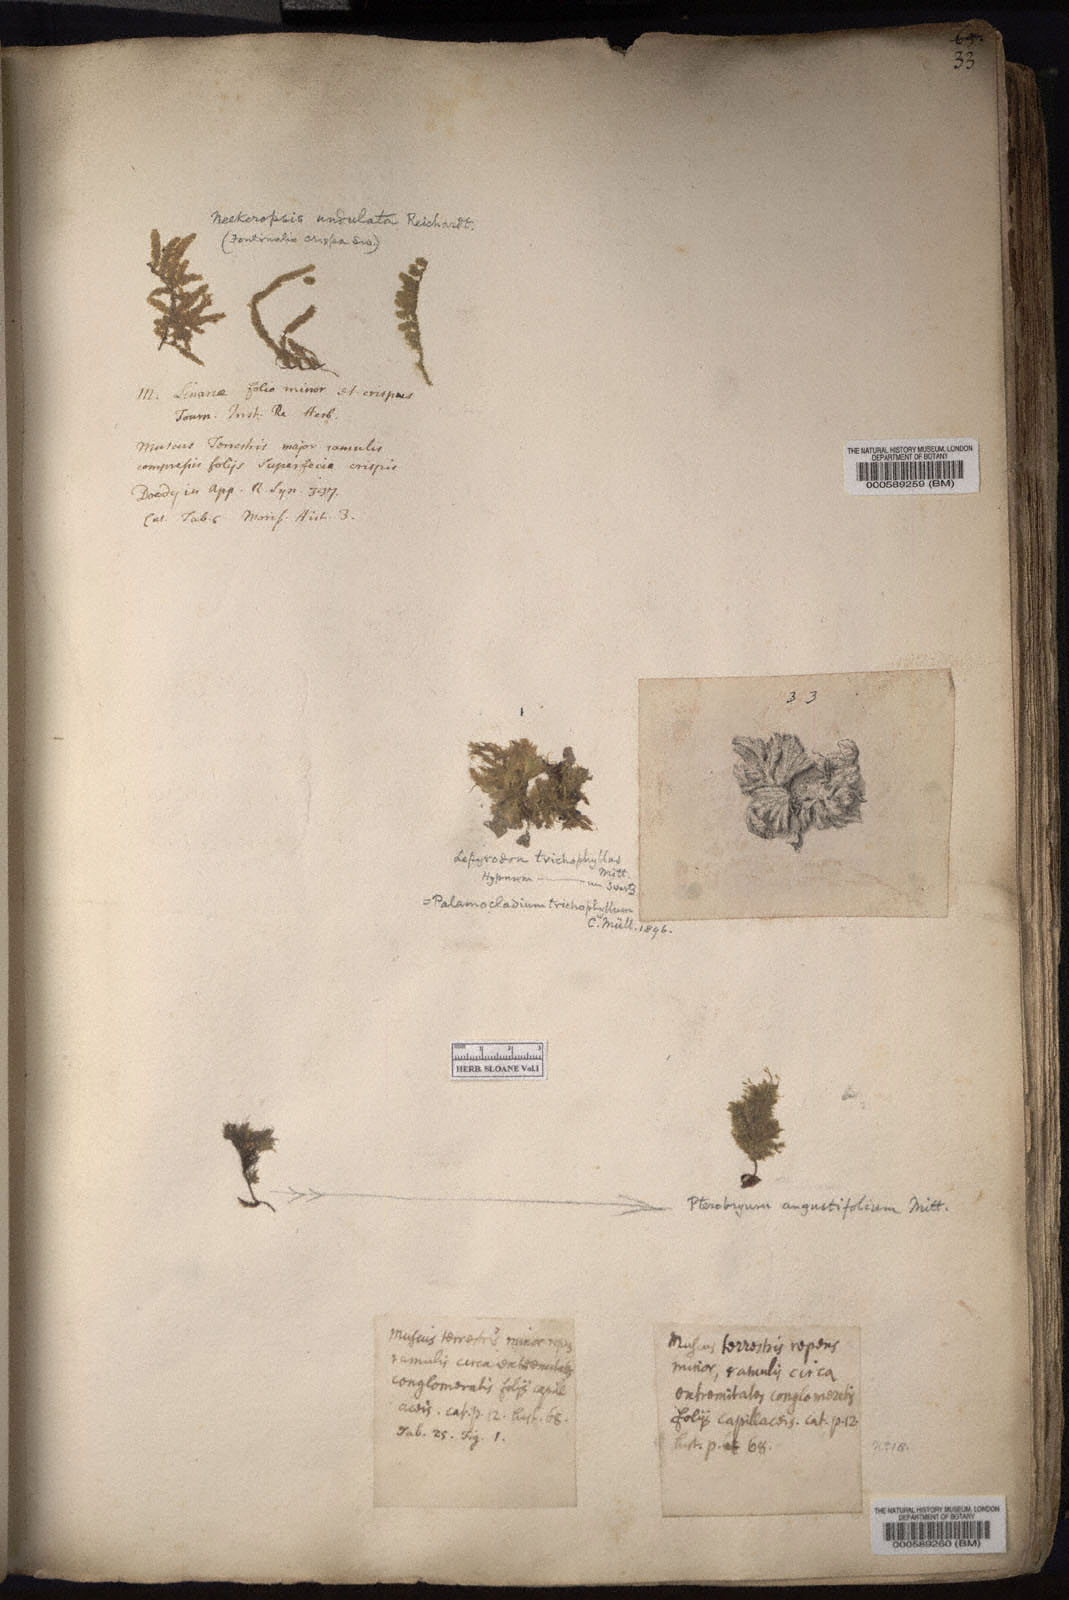 65.
33
Neckeropsis undulata Reichardt.
(Fontinalis crispa Sw.)
M. Linariæ folio minor et crispus
Tourn. Inst. Re Herb.
Muscus Terrestris major ramulis
compressis folijs Superfecie crispis
Doody in App. R. Syn. 337.
Cat. Tab. 5 Moris. Hist. 3.
THE NATURAL HISTORY MUSEUM, LONDON
DEPARTMENT OF BOTANY
000589259 (BM)
33
Lepyrodon trichophyllus
Mitt.
Hypnum ——— um Swartz
=Palamocladium trichophyllum
C. Müll. 1896.
1 2 3
HERB. SLOANE Vol.1
Pterobryum angustifolium Mitt.
Muscus terrestris minor repens
ramulis circa extremitates
conglomeratis folijs capill
aceis. cat. p. 12. hist. 68.
Tab. 25. Fig. 1.
Muscus terrestris repens
minor, ramulis circa
extremitates conglomeratis
folijs capillaceis. cat. p. 12.
hist. p. 68.
THE NATURAL HISTORY MUSEUM, LONDON
DEPARTMENT OF BOTANY
000589260 (BM)